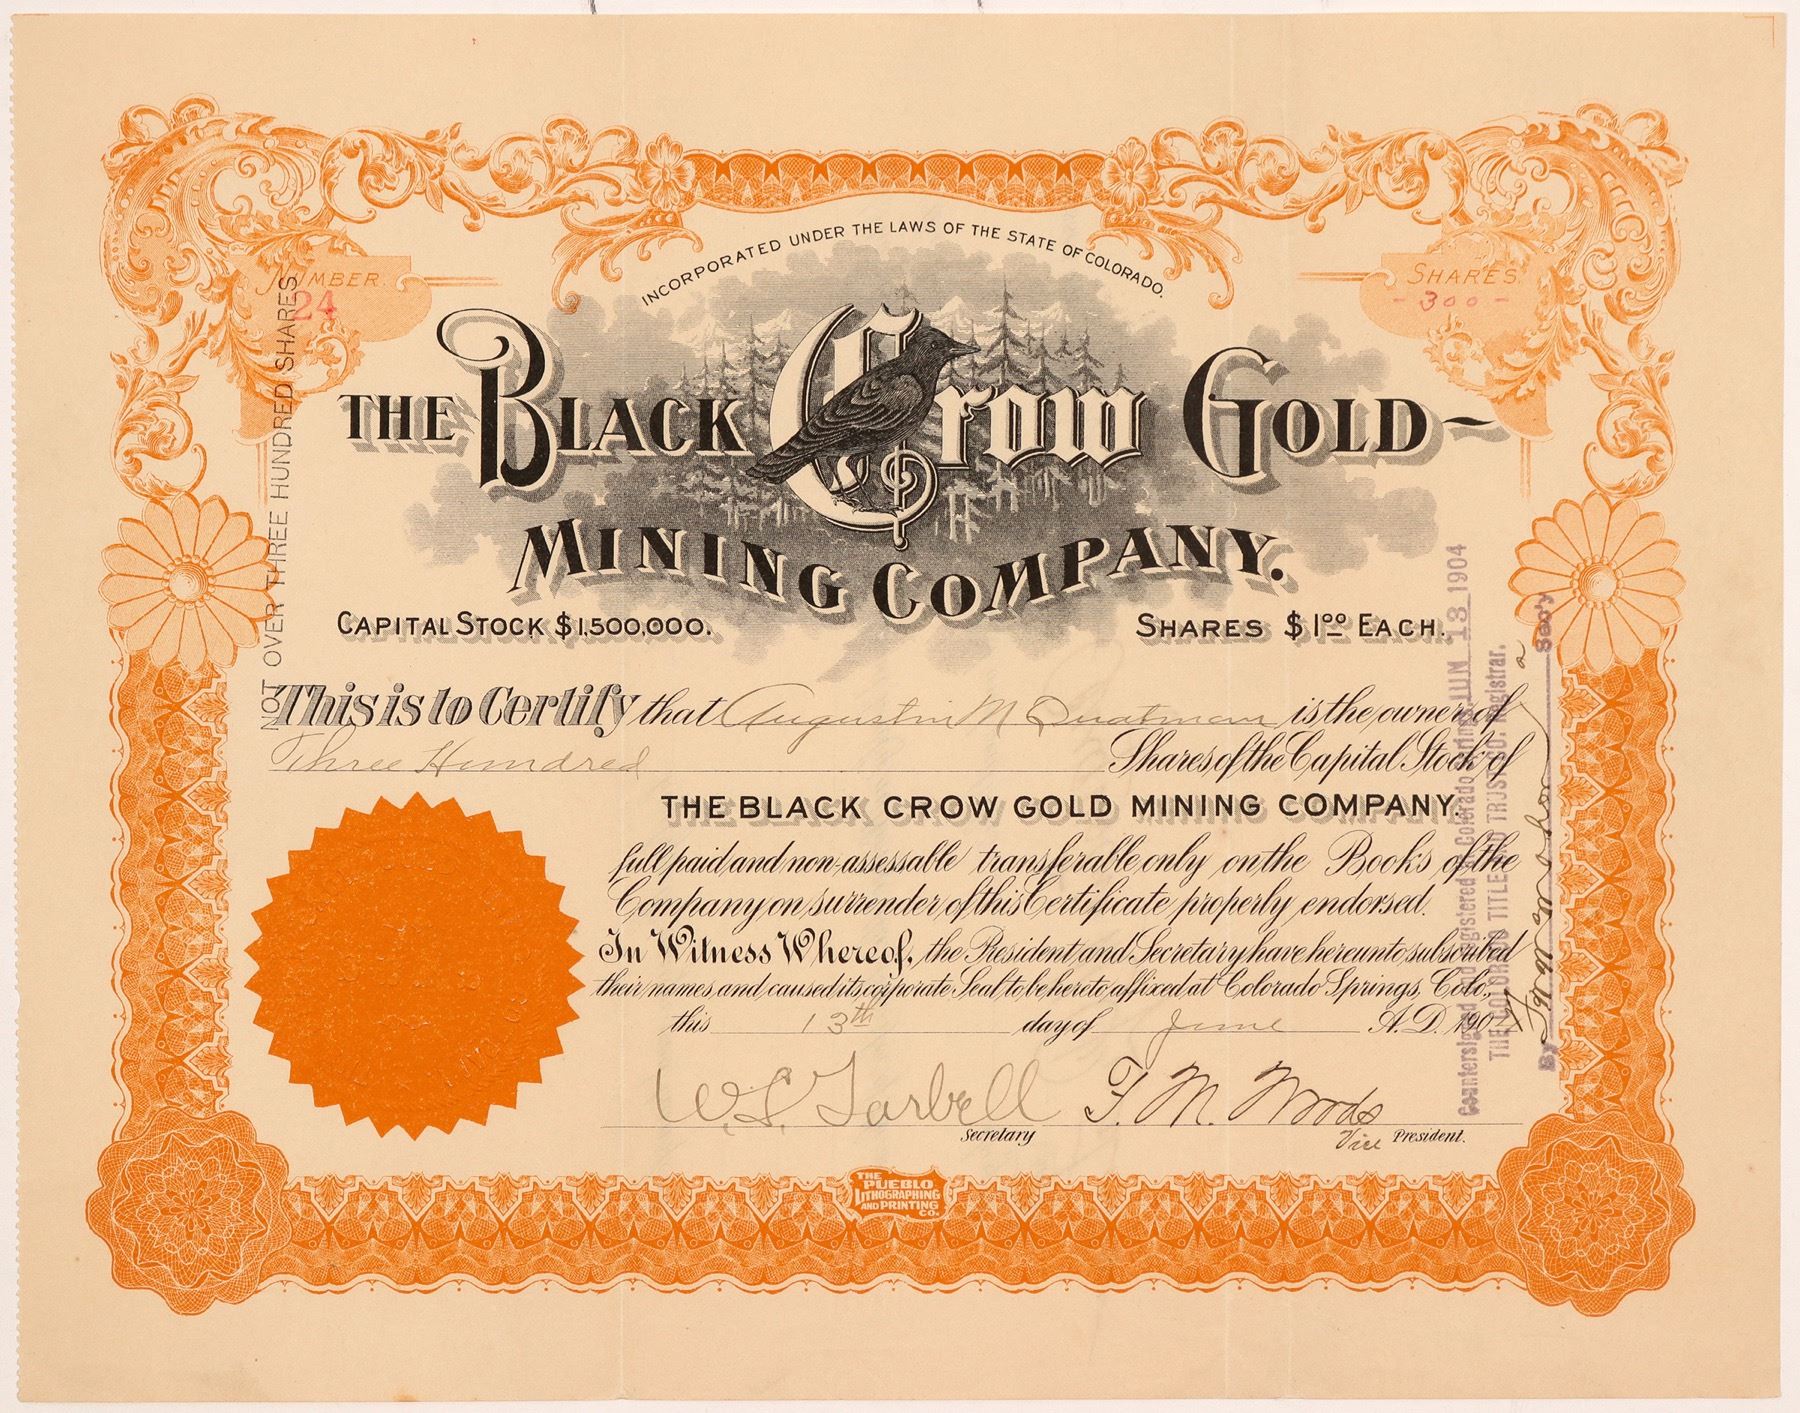 INCORPORATED UNDER THE LAWS OF THE STATE OF COLORADO.
NUMBER
24
SHARES
- 300 -
THE BLACK Crow GOLD
MINING COMPANY.
CAPITAL STOCK $1,500,000.
SHARES $1.00 EACH.
NOT OVER THREE HUNDRED SHARES
This is to Certify that Augustin M Quatman is the owner of
Three Hundred Shares of the Capital Stock of
THE BLACK CROW GOLD MINING COMPANY.
full paid and non-assessable transferable only on the Books of the
Company on surrender of this Certificate properly endorsed.
In Witness Whereof, the President and Secretary have hereunto subscribed
their names and caused its corporate Seal to be hereto affixed at Colorado Springs, Colo.,
this 13th day of June A.D. 1904
W.S. Tarbell F. M. Woods
Secretary Vice President.
Countersigned and Registered at Colorado Springs JUN 13 1904
THE COLORADO TITLE & TRUST CO. Registrar.
By Sec'y
THE
PUEBLO
LITHOGRAPHING
AND PRINTING
CO.